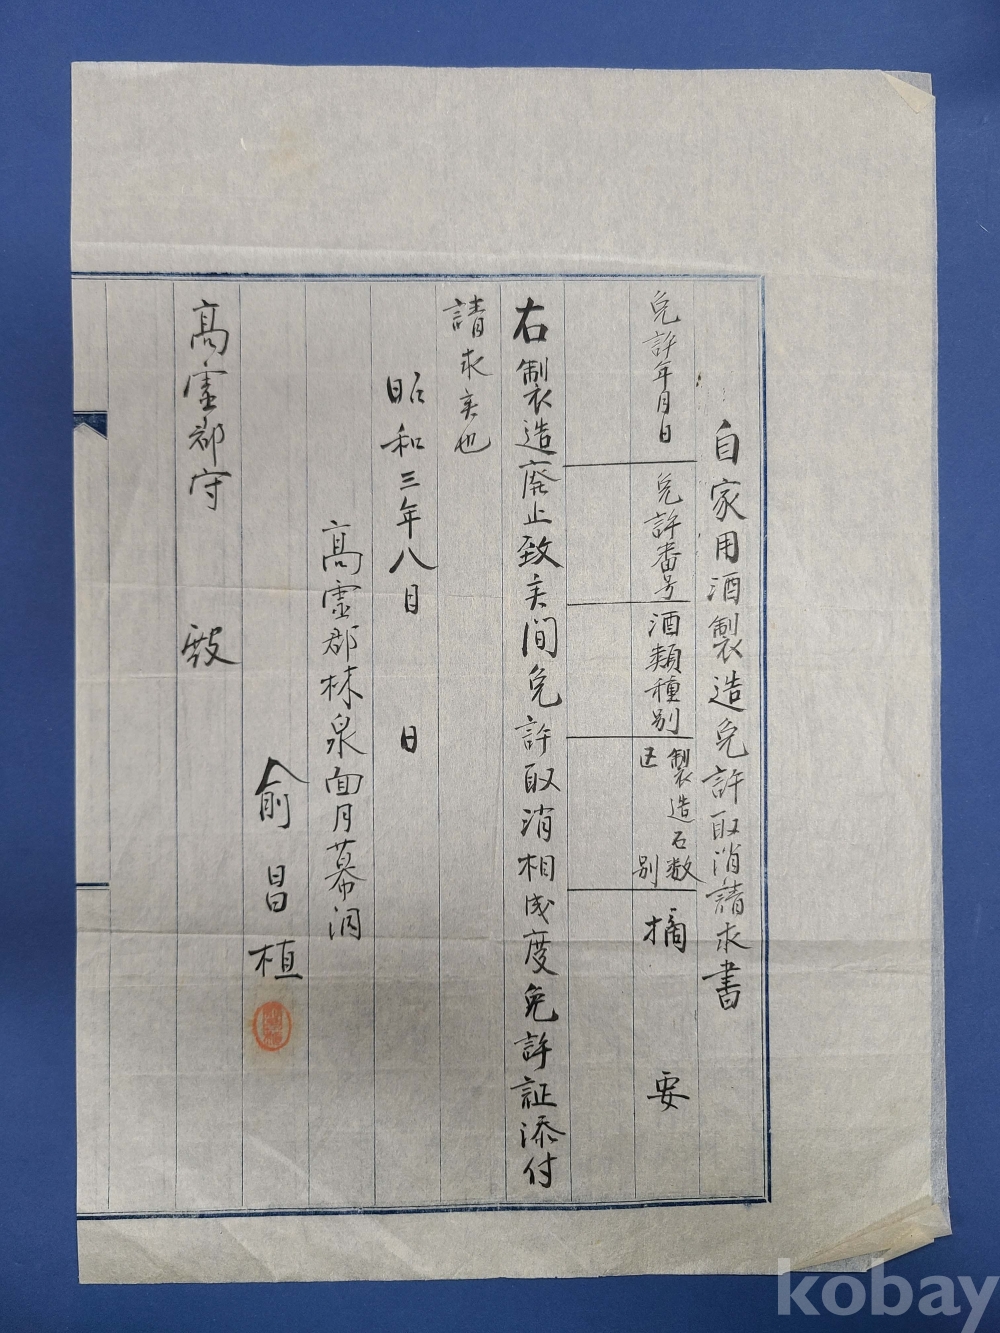 自家用酒製造免許取消請求書
免許年月日
免許番号
酒類種別
製造石数
区別
摘要
右製造廃止致候間免許取消相成度免許証添付
請求候也
昭和三年八月 日
高霊郡林泉面月幕洞
俞昌植
高霊郡守 殿
kobay